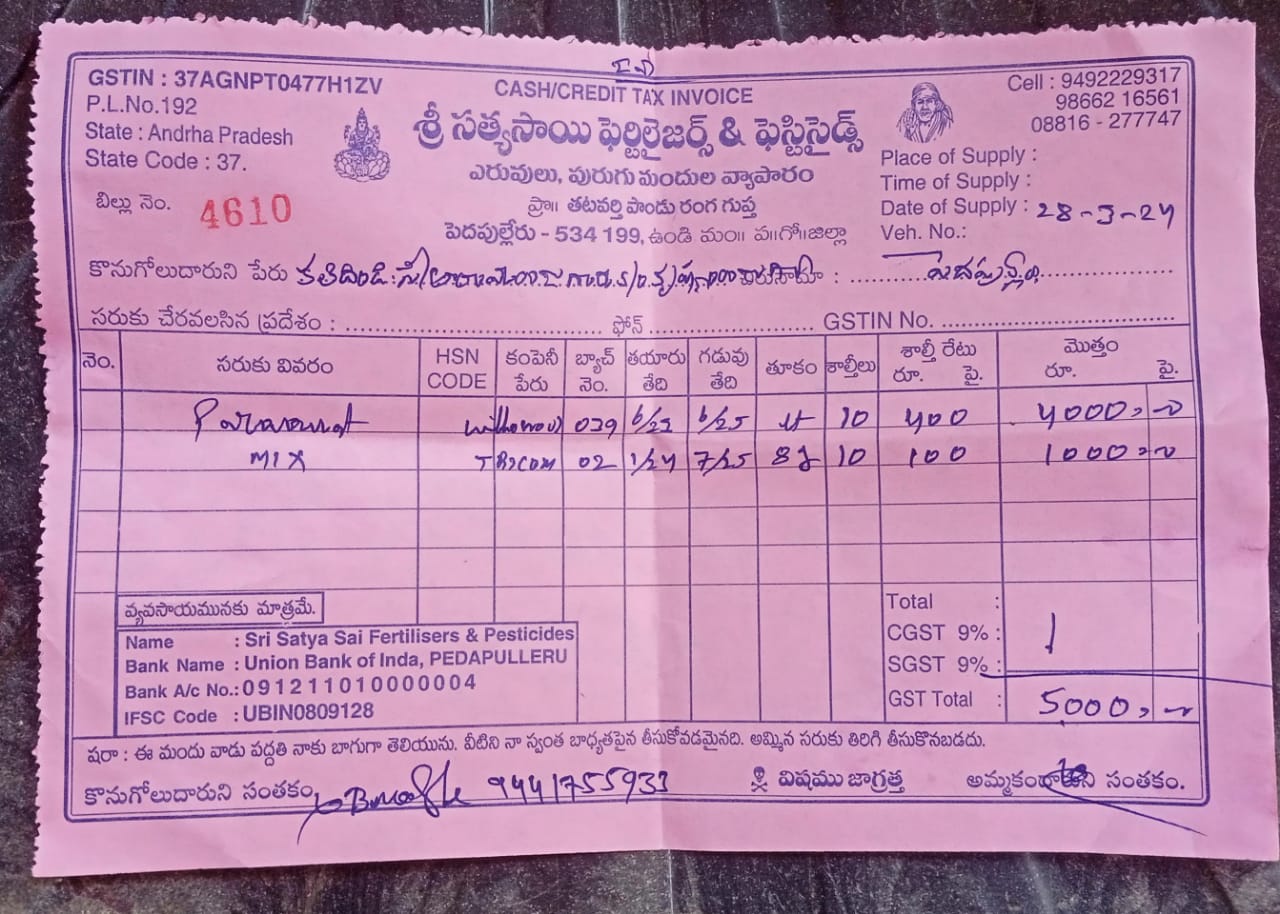 CASH/CREDIT TAX INVOICE
GSTIN : 37AGNPT0477H1ZV
P.L.No.192
State : Andrha Pradesh
State Code : 37.
బిల్లు నెం. 4610
శ్రీ సత్యసాయి ఫెర్టిలైజర్స్ & ఫెస్టిసైడ్స్
ఎరువులు, పురుగు మందుల వ్యాపారం
ప్రొ॥ తటవర్తి పాండు రంగ గుప్త
పెదపుల్లేరు - 534 199, ఉండి మం॥ ప॥గో॥జిల్లా
Cell : 9492229317
98662 16561
08816 - 277747
Place of Supply :
Time of Supply :
Date of Supply : 28-3-24
Veh. No.:
కొనుగోలుదారుని పేరు
సరుకు చేరవలసిన ప్రదేశం : ఫోన్ GSTIN No.
నెం. సరుకు వివరం HSN CODE కంపెనీ పేరు బ్యాచ్ నెం. తయారు తేది గడువు తేది తూకం శాల్తీలు శాల్తీ రేటు రూ. పై. మొత్తం రూ. పై.
039 6/23 6/25 10 400 4000
MIX 02 1/24 7/25 10 100 1000
వ్యవసాయమునకు మాత్రమే.
Name : Sri Satya Sai Fertilisers & Pesticides
Bank Name : Union Bank of Inda, PEDAPULLERU
Bank A/c No.: 091211010000004
IFSC Code : UBIN0809128
Total :
CGST 9% :
SGST 9% :
GST Total : 5000
షరా : ఈ మందు వాడు పద్దతి నాకు బాగుగా తెలియును. వీటిని నా స్వంత బాధ్యతపైన తీసుకోవడమైనది. అమ్మిన సరుకు తిరిగి తీసుకొనబడదు.
కొనుగోలుదారుని సంతకం 9441755933 విషము జాగ్రత్త సంతకం.